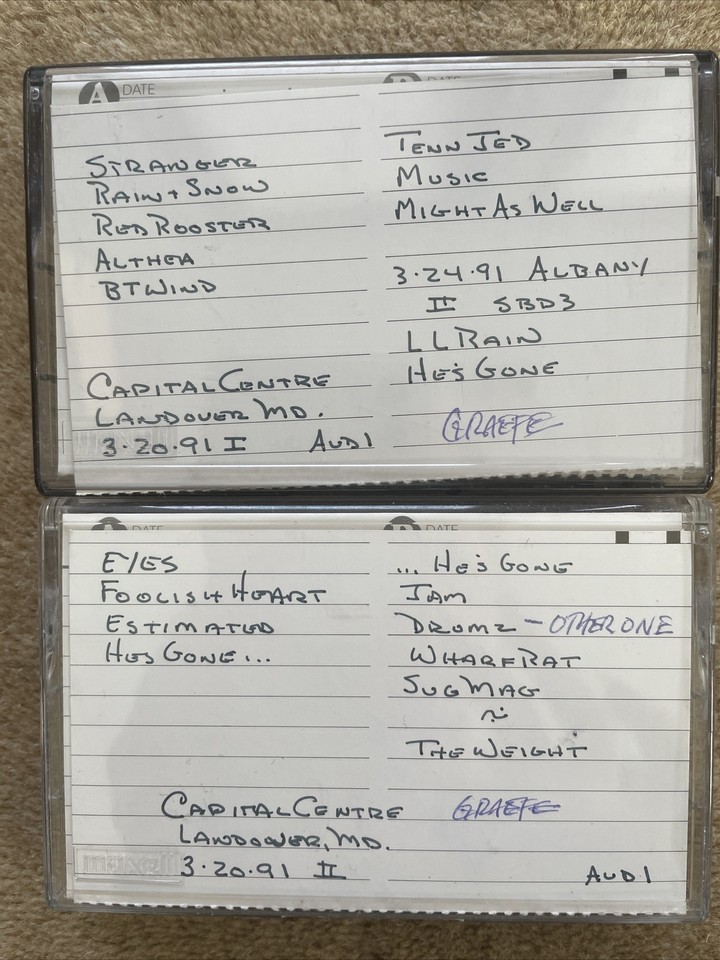 A DATE
STRANGER
RAIN + SNOW
RED ROOSTER
ALTHEA
BTWIND
CAPITAL CENTRE
LANDOVER MD.
3·20·91 I AUD1
DATE
TENN JED
MUSIC
MIGHT AS WELL
3·24·91 ALBANY
II SBD3
LL RAIN
HE'S GONE
GRAEFE
DATE
EYES
FOOLISH HEART
ESTIMATED
HES GONE...
CAPITAL CENTRE
LANDOVER, MD.
maxell
3·20·91 II
DATE
... HE'S GONE
JAM
DRUMZ - OTHER ONE
WHARF RAT
SUG MAG
~
THE WEIGHT
GRAEFE
AUD1